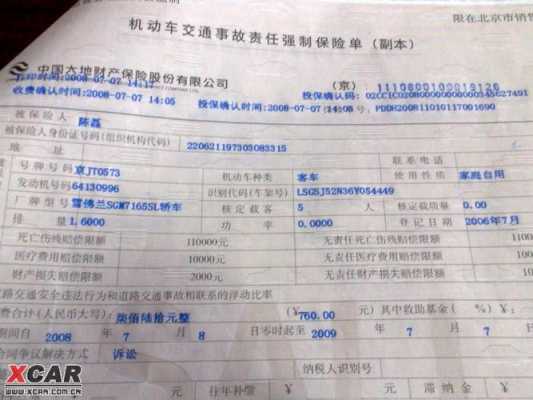 限在北京市销售
机动车交通事故责任强制保险单（副本）
中国大地财产保险股份有限公司
（京） 1110800100019126
收费确认时间:2008-07-07 14:05 投保确认时间:2008-07-07 14:05 号:PDDH20081101011700169​0
被保险人 陈磊
被保险人身份证号码(组织机构代码) 220621197303083315
地址 联系电话
号牌号码 京JT0573 机动车种类 客车 使用性质 家庭自用
发动机号码 64130996 识别代码(车架号) LSGSJ52N36Y054449
厂牌型号 雪佛兰SGM7165SL轿车 核定载客 5 人 核定载质量 0.00
排量 1.6000 功率 0.0000 登记日期 2006年7月
死亡伤残赔偿限额 110000元 无责任死亡伤残赔偿限额 110
医疗费用赔偿限额 10000元 无责任医疗费用赔偿限额
财产损失赔偿限额 2000元 无责任财产损失赔偿限额
道路交通安全违法行为和道路交通事故相联系的浮动比率
费合计(人民币大写): 柒佰陆拾元整 (¥: 760.00 元)其中救助基金( %)¥:
期间自 2008 年 7 月 8 日零时起至 2009 年 7 月 7 日
合同争议解决方式 诉讼
纳税人识别号
¥ 往年补偿 ¥ 滞纳金 ¥
XCAR
WWW.XCAR.COM.CN